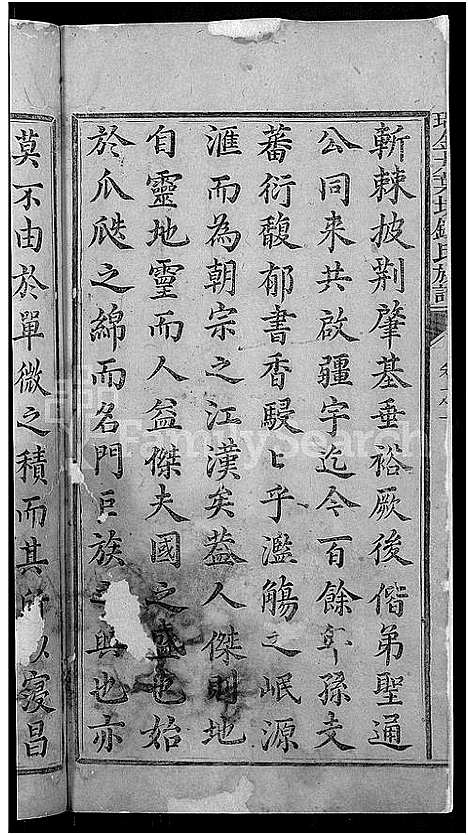 斬棘披荆肇基垂裕厥後偕弟聖通
公同来共啟疆宇迄今百餘年孫支
蕃衍馥郁書香駸匕乎濫觴之岷源
滙而為朝宗之江漢矣蓋人傑則地
自靈地靈而人益傑夫國之盛也始
於瓜瓞之綿而名門巨族之興也亦
莫不由於單微之積而其所以寖昌
FamilySearch